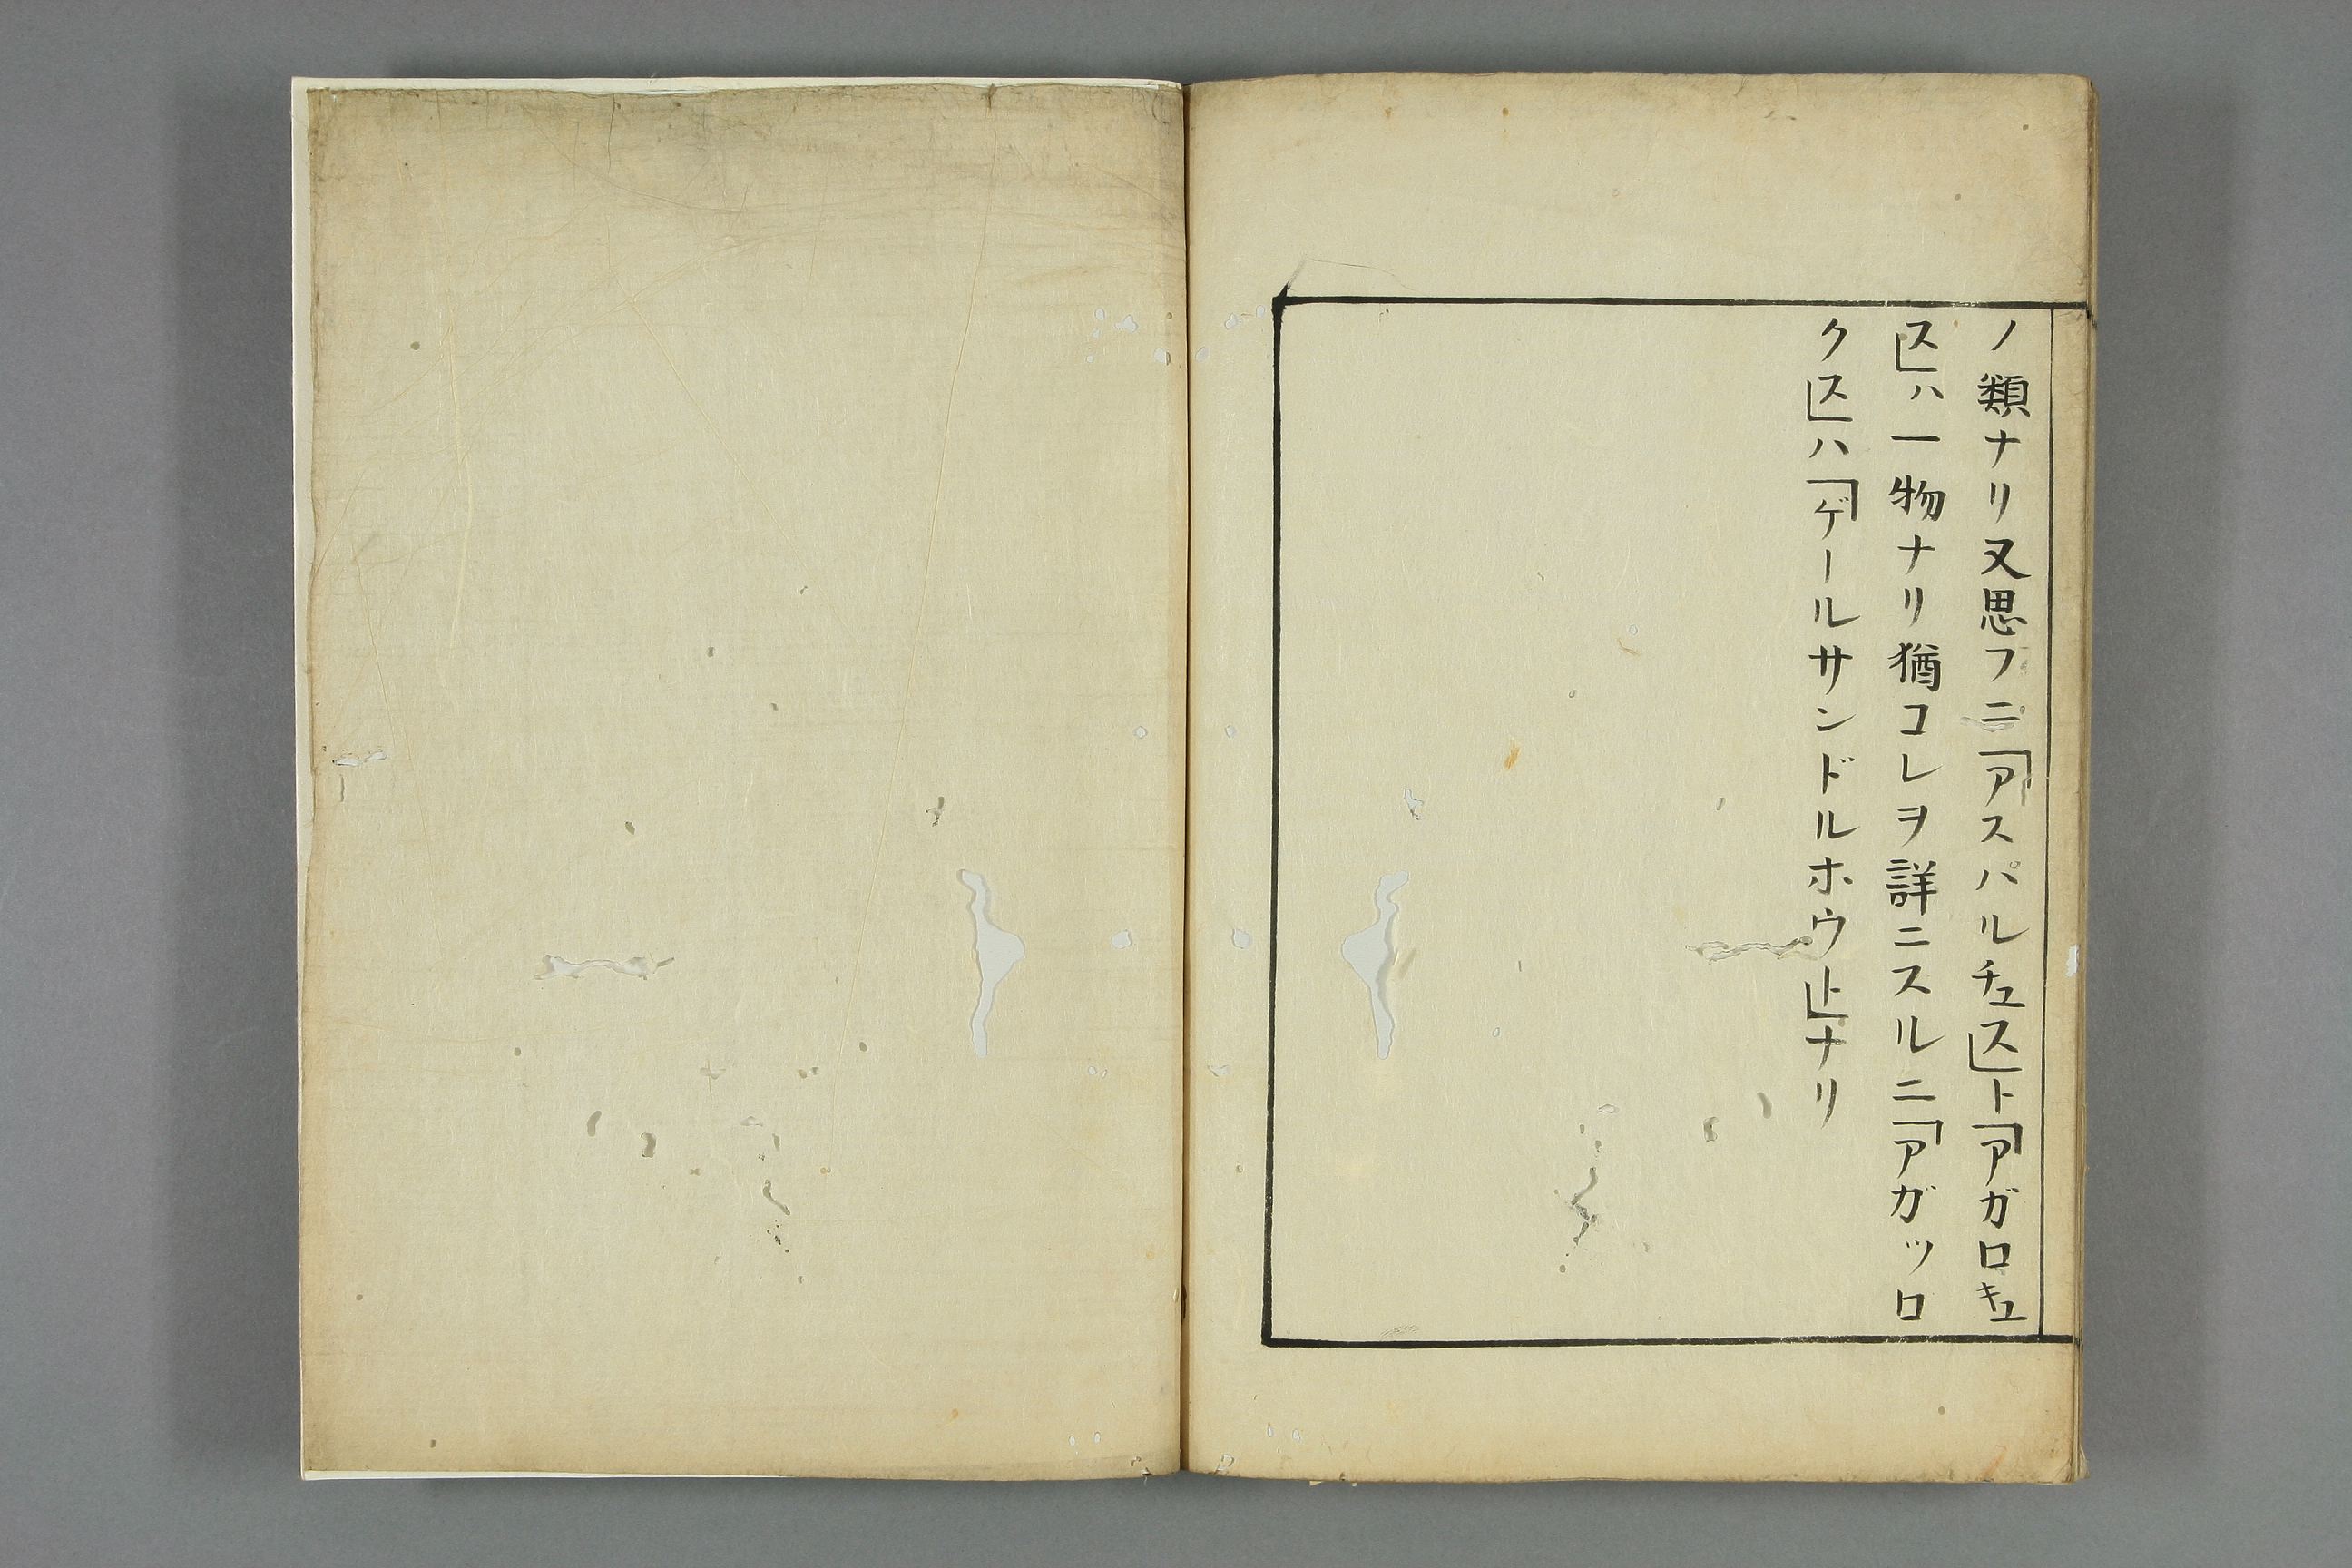 ノ類ナリ又思フニ「アスパルチュス」ト「アガロキュ
ス」ハ一物ナリ猶コレヲ詳ニスルニ「アガッロ
クス」ハ「ゲールサンドルホウト」ナリ